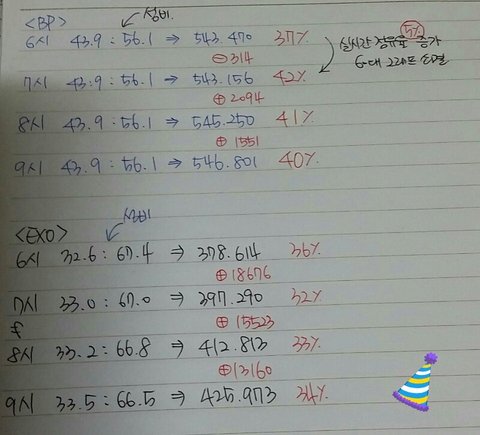 <BP> 성비
6시 43.9 : 56.1 ⇒ 543.470 37%
⊖ 314
7시 43.9 : 56.1 ⇒ 543.156 42%
⊕ 2094
8시 43.9 : 56.1 ⇒ 545.250 41%
⊕ 1551
9시 43.9 : 56.1 ⇒ 546.801 40%
실시간 점유율 5% 증가
<EXO> 성비
6시 32.6 : 67.4 ⇒ 378.614 36%
⊕ 18676
7시 33.0 : 67.0 ⇒ 397.290 32%
⊕ 15523
8시 33.2 : 66.8 ⇒ 412.813 33%
⊕ 13160
9시 33.5 : 66.5 ⇒ 425.973 34%